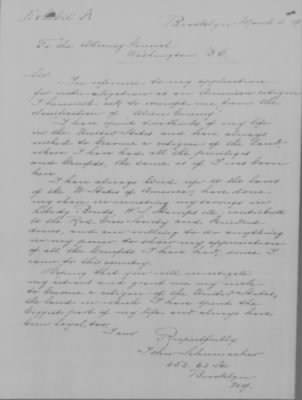 Exhibit A
Brooklyn March 2, 19
To the Attorney General
Washington D C.
Sir
In reference to my application
for naturalization as an American citizen
I herewith ask to exempt me from the
classification of "Alien Enemy"
I have spent of my life
in the United States and have always
wished to become a citizen of the land
where I have had all the privileges
and benefits, the same as if I was born
here
I have always lived up to the laws
of the U States of America, have done
my share in investing my savings in
Liberty Bonds, W. S. Stamps etc, contribute
to the Red Cross Society and United
drives, and am willing to do anything
in my power to show my appreciation
of all the benefits I have had, since I
came to this country.
Hoping that you will investigate
my record and grant me my wish
to become a citizen of the United States,
the land in which I have spend the
biggest part of my life and always have
been loyal, too
I am
Respectfully
John Schumacher
452 - 65 St
Brooklyn
N.Y.